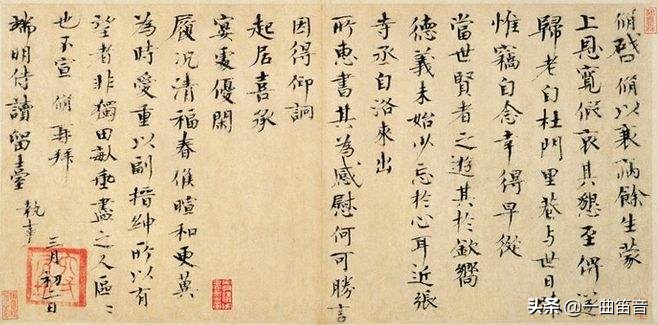 脩啓脩以衰病餘生蒙
上恩寬假哀其懇至俾遂
歸老自杜門里巷與世日疎
惟竊自念幸得早從
當世賢者之遊其於欽嚮
德義未始少忘於心耳近張
寺丞自洛來出
所惠書其為感慰何可勝言
因得仰詗
起居喜承
宴處優閑
履況清福春候暄和更冀
為時愛重以副搢紳所以有
望者非獨田畝垂盡之人區區
也不宣脩再拜
端明侍讀留臺執事
三月初二日
头条@一曲笛音